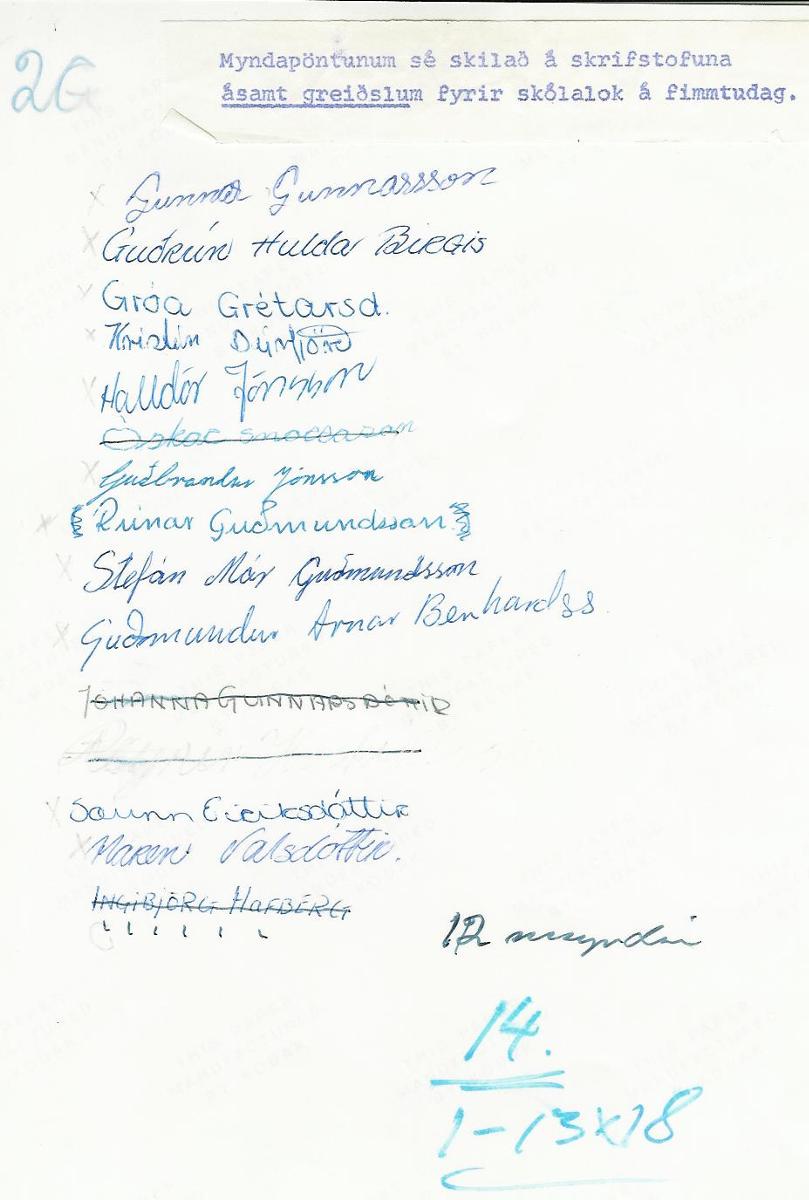 2G
Myndapöntunum sé skilað á skrifstofuna
ásamt greiðslum fyrir skólalok á fimmtudag.
Gunnar Gunnarsson
Guðrún Hulda Birgis
Gróa Grétarsd.
Kristín Dýrfjörð
Halldór Jónsson
Óskar Snorrason
Guðbrandur Jónsson
Rúnar Guðmundsson
Stefán Már Guðmundsson
Guðmundur Arnar Bernhardss
JÓHANNA GUNNARSDÓTTIR
Sæunn Eiríksdóttir
Maren Valsdóttir.
INGIBJÖRG HAFBERG
12 myndir
14.
1-13x18